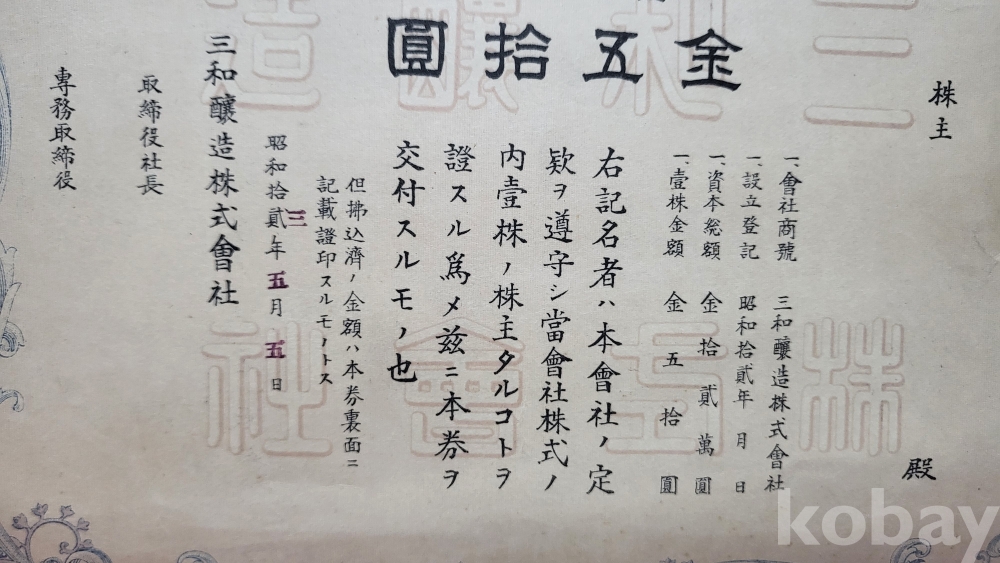 金五拾圓
株主 殿
一、會社商號 三和釀造株式會社
一、設立登記 昭和拾貳年 月 日
一、資本総額 金拾貳萬圓
一、壹株金額 金五拾圓
右記名者ハ本會社ノ定
欵ヲ遵守シ當會社株式ノ
内壹株ノ株主タルコトヲ
證スル爲メ茲ニ本券ヲ
交付スルモノ也
但拂込濟ノ金額ハ本券裏面ニ
記載證印スルモノトス
昭和拾貳年五月五日
三
三和釀造株式會社
取締役社長
專務取締役
三和釀造
株式會社
kobay